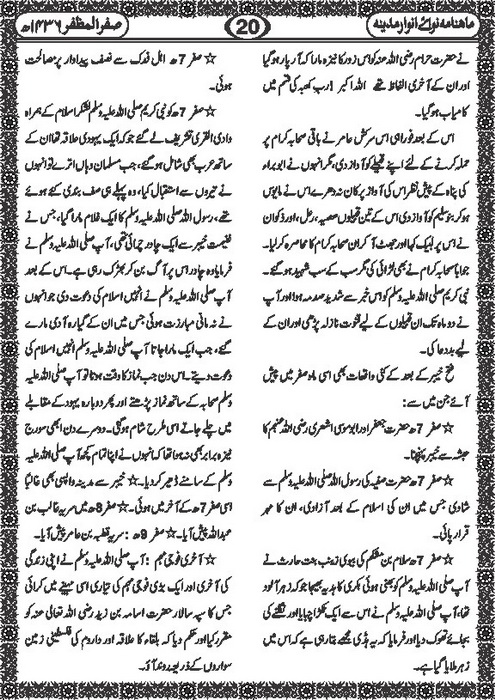 ماہنامہ نوائے انوار مدینہ
20
صفر المظفر ۱۴۳۶ھ
نے حضرت حرام رضی اللہ عنہ کو اس زور کا نیزہ مارا کہ آر پار ہو گیا
اور ان کے آخری الفاظ تھے اللہ اکبر! رب کعبہ کی قسم میں
کامیاب ہو گیا۔
اس کے بعد فوراً ہی اس سرکش عامر نے باقی صحابہ کرام پر
حملہ کرنے کے لئے اپنے قبیلے کو آواز دی، مگر انہوں نے ابو براء
کی پناہ کے پیش نظر اس کی آواز پر کان نہ دھرے اس نے مایوس
ہو کر بنو سلیم کو آواز دی اس کے تین قبیلوں عصیہ، رعل، اور ذکوان
نے اس پر لبیک کہا اور جھٹ آ کر ان صحابہ کرام کا محاصرہ کر لیا۔
جواباً صحابہ کرام نے بھی لڑائی کی مگر سب کے سب شہید ہو گئے۔
نبی کریم صلی اللہ علیہ وسلم کو اس خبر سے شدید صدمہ ہوا اور آپ
نے دو ماہ تک ان قبیلوں کے لیے قنوت نازلہ پڑھی اور ان کے
لیے بددعا کی۔
فتح خیبر کے بعد کے کئی واقعات بھی اسی ماہ صفر میں پیش
آئے جن میں سے:
☆ صفر 7ھ حضرت جعفر اور ابو موسی اشعری رضی اللہ عنہم کا
حبشہ سے خیبر پہنچنا۔
☆ صفر 7ھ حضرت صفیہ کی رسول اللہ صلی اللہ علیہ وسلم سے
شادی جس میں ان کی اسلام کے بعد آزادی، ان کا مہر
قرار پائی۔
☆ صفر 7ھ سلام بن مشکم کی بیوی زینب بنت حارث نے
آپ صلی اللہ علیہ وسلم کو بھنی ہوئی بکری کا ہدیہ بھیجا جو کہ زہر آلود
تھا، آپ صلی اللہ علیہ وسلم نے اس سے ایک ٹکڑا چبایا اور نگلنے کی
بجائے تھوک دیا اور فرمایا کہ یہ ہڈی مجھے بتا رہی ہے کہ اس میں
زہر ملایا گیا ہے۔
☆ صفر 7ھ اہل فدک سے نصف پیداوار پر مصالحت
ہوئی۔
☆ صفر 7ھ کو نبی کریم صلی اللہ علیہ وسلم لشکر اسلام کے ہمراہ
وادی القری تشریف لے گئے جو کہ ایک یہودی علاقہ تھا ان کے
ساتھ عرب بھی شامل ہو گئے، جب مسلمان وہاں اترے تو انہوں
نے تیروں سے استقبال کیا، وہ پہلے ہی صف بندی کئے ہوئے
تھے، رسول اللہ صلی اللہ علیہ وسلم کا ایک غلام مارا گیا، جس نے
غنیمت خیبر سے ایک چادر چرائی تھی، آپ صلی اللہ علیہ وسلم نے
فرمایا وہ چادر اس پر آگ بن کر بھڑک رہی ہے۔ اس کے بعد
آپ صلی اللہ علیہ وسلم نے انہیں اسلام کی دعوت دی جو انہوں
نے نہ مانی مبارزت ہوئی جس میں ان کے گیارہ آدمی مارے
گئے، جب ایک مارا جاتا آپ صلی اللہ علیہ وسلم انہیں اسلام کی
دعوت دیتے۔ اس دن جب نماز کا وقت ہوتا تو آپ صلی اللہ علیہ
وسلم صحابہ کے ساتھ نماز پڑھتے اور پھر دوبارہ یہود کے مقابلے
میں چلے جاتے اسی طرح شام ہو گئی۔ دوسرے دن ابھی سورج
نیزہ برابر بھی نہ ہوا تھا کہ انہوں نے اپنا تمام کچھ آپ صلی اللہ علیہ
وسلم کے سامنے ڈھیر کر دیا۔ ☆ خیبر سے مدینہ واپسی بھی غالباً
اسی صفر 7ھ کے آخر میں ہوئی۔ ☆ صفر 8ھ میں سریہ غالب بن
عبداللہ پیش آیا۔ ☆ صفر 9ھ: سریہ قطبہ بن عامر پیش آیا۔
☆ آخری فوجی مہم: آپ صلی اللہ علیہ وسلم نے اپنی زندگی
کی آخری اور ایک بڑی فوجی مہم کی تیاری اسی مہینے میں کرائی
جس کا سپہ سالار حضرت اسامہ بن زید رضی اللہ تعالی عنہ کو
مقرر کیا اور حکم دیا کہ بلقاء کا علاقہ اور داروم کی فلسطینی زمین
سواروں کے ذریعہ روند آؤ۔